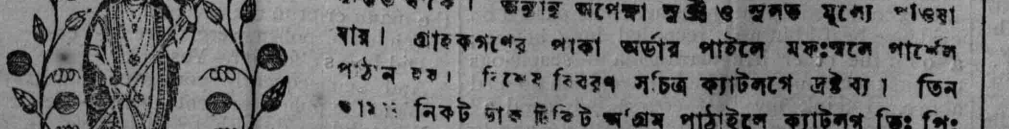 অপেক্ষা সুশ্রী ও সুলভ মূল্যে পাওয়া
যায়। গ্রাহকগণের পাকা অর্ডার পাইলে মফঃস্বলে পার্শেল
পাঠান হয়। বিশেষ বিবরণ সচিত্র ক্যাটলগে দ্রষ্টব্য। তিন
নিকট ডাক টিকিট অগ্রিম পাঠাইলে ক্যাটলগ ভিঃ পিঃ